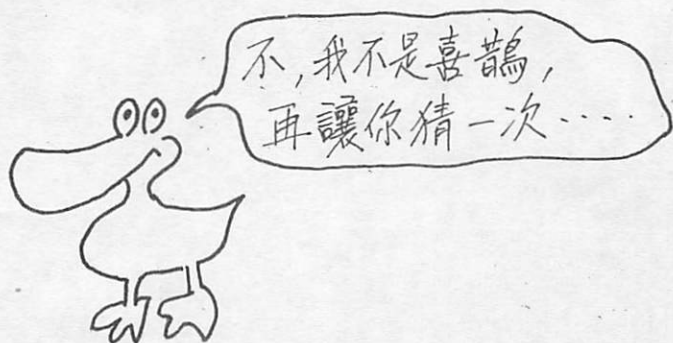 不,我不是喜鵲,
再讓你猜一次‧‧‧‧‧